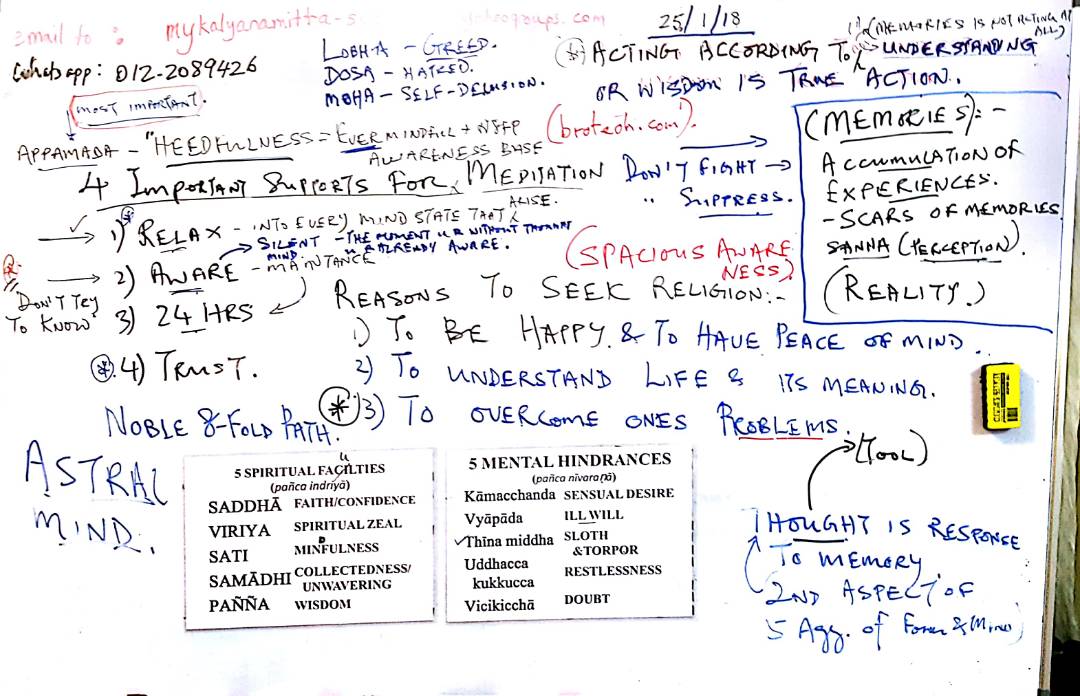 Email to : mykalyanamitta-s yahoogroups.com
Whatsapp: 012-2089426
25/1/18
(MEMORIES IS NOT ACTING AT ALL)
LOBHA - GREED.
DOSA - HATRED.
MOHA - SELF-DELUSION.
ACTING ACCORDING TO UNDERSTANDING
OR WISDOM IS TRUE ACTION.
MOST IMPORTANT.
APPAMADA - "HEEDFULNESS = EVER MINDFUL +
AWARENESS BASE
(broteoh.com).
4 IMPORTANT SUPPORTS FOR MEDITATION
DON'T FIGHT
" SUPPRESS.
1) RELAX - INTO EVERY MIND STATE THAT
ARISE.
SILENT MIND: - THE MOMENT U R WITHOUT THOUGHT
U R ALREADY AWARE.
2) AWARE - MAINTANCE
DON'T TRY
TO KNOW
3) 24 HRS
4) TRUST.
(SPACIOUS AWARE
NESS)
(MEMORIES):-
ACCUMULATION OF
EXPERIENCES.
- SCARS OF MEMORIES
SANNA (PERCEPTION).
(REALITY.)
REASONS TO SEEK RELIGION:-
1) TO BE HAPPY. & TO HAVE PEACE OF MIND.
2) TO UNDERSTAND LIFE & ITS MEANING.
3) TO OVERCOME ONES PROBLEMS.
(TOOL)
NOBLE 8-FOLD PATH.
ASTRAL
MIND.
5 SPIRITUAL FACILTIES
u
(pañca indriyā)
SADDHĀ FAITH/CONFIDENCE
VIRIYA SPIRITUAL ZEAL
D
SATI MINFULNESS
SAMĀDHI COLLECTEDNESS/
UNWAVERING
PAÑÑA WISDOM
5 MENTAL HINDRANCES
(pañca nīvaraṇā)
Kāmacchanda SENSUAL DESIRE
Vyāpāda ILL WILL
Thīna middha SLOTH
&TORPOR
Uddhacca
kukkucca RESTLESSNESS
Vicikicchā DOUBT
THOUGHT IS RESPONSE
TO MEMORY.
2ND ASPECT OF
5 Agg. of Form & Mind